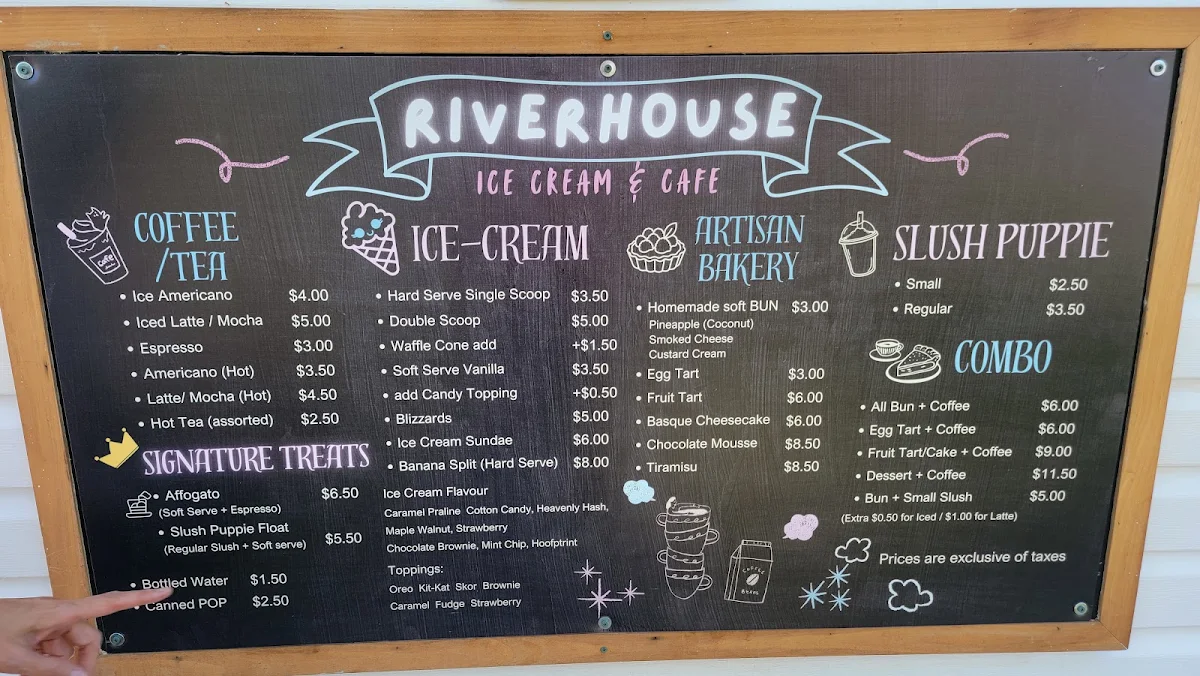 RIVERHOUSE
ICE CREAM & CAFE
COFFEE
/TEA
• Ice Americano $4.00
• Iced Latte / Mocha $5.00
• Espresso $3.00
• Americano (Hot) $3.50
• Latte/ Mocha (Hot) $4.50
• Hot Tea (assorted) $2.50
SIGNATURE TREATS
• Affogato $6.50
(Soft Serve + Espresso)
• Slush Puppie Float $5.50
(Regular Slush + Soft serve)
• Bottled Water $1.50
• Canned POP $2.50
ICE-CREAM
• Hard Serve Single Scoop $3.50
• Double Scoop $5.00
• Waffle Cone add +$1.50
• Soft Serve Vanilla $3.50
• add Candy Topping +$0.50
• Blizzards $5.00
• Ice Cream Sundae $6.00
• Banana Split (Hard Serve) $8.00
Ice Cream Flavour
Caramel Praline Cotton Candy, Heavenly Hash,
Maple Walnut, Strawberry
Chocolate Brownie, Mint Chip, Hoofptrint
Toppings:
Oreo Kit-Kat Skor Brownie
Caramel Fudge Strawberry
ARTISAN
BAKERY
• Homemade soft BUN $3.00
Pineapple (Coconut)
Smoked Cheese
Custard Cream
• Egg Tart $3.00
• Fruit Tart $6.00
• Basque Cheesecake $6.00
• Chocolate Mousse $8.50
• Tiramisu $8.50
COFFEE
BEANS
SLUSH PUPPIE
• Small $2.50
• Regular $3.50
COMBO
• All Bun + Coffee $6.00
• Egg Tart + Coffee $6.00
• Fruit Tart/Cake + Coffee $9.00
• Dessert + Coffee $11.50
• Bun + Small Slush $5.00
(Extra $0.50 for Iced / $1.00 for Latte)
Prices are exclusive of taxes